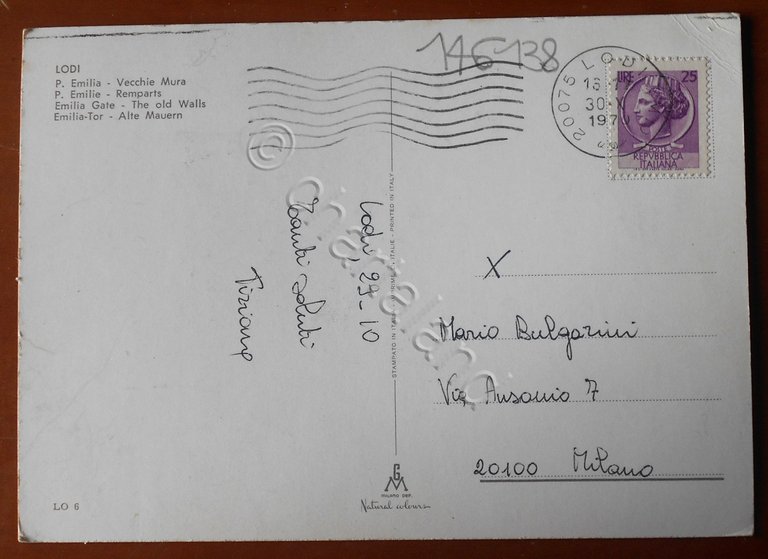 LODI
P. Emilia - Vecchie Mura
P. Emilie - Remparts
Emilia Gate - The old Walls
Emilia-Tor - Alte Mauern
146138
20075 LODI
30.X
1970
LIRE 25
POSTE
REPVBBLICA
ITALIANA
Lodi, 29-10
Tanti saluti
Tiziana
STAMPATO IN ITALIA - IMPRIMÉ EN ITALIE - PRINTED IN ITALY
X
Mario Bulgarini
Via Ausonio 7
20100 Milano
GM
MILANO DEP.
Natural colours
LO 6